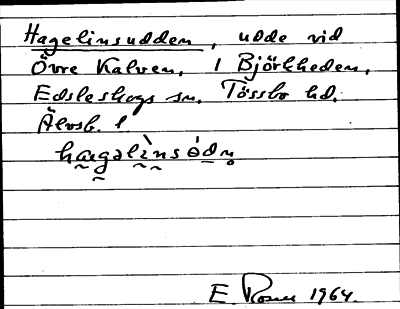 Hagelinsudden, udde vid
Övre Kalven, 1 Björkheden,
Edsleskogs sn. Tössbo hd.
Älvsb. l.
hagəlìnsódn̥
E. Rosell 1964.